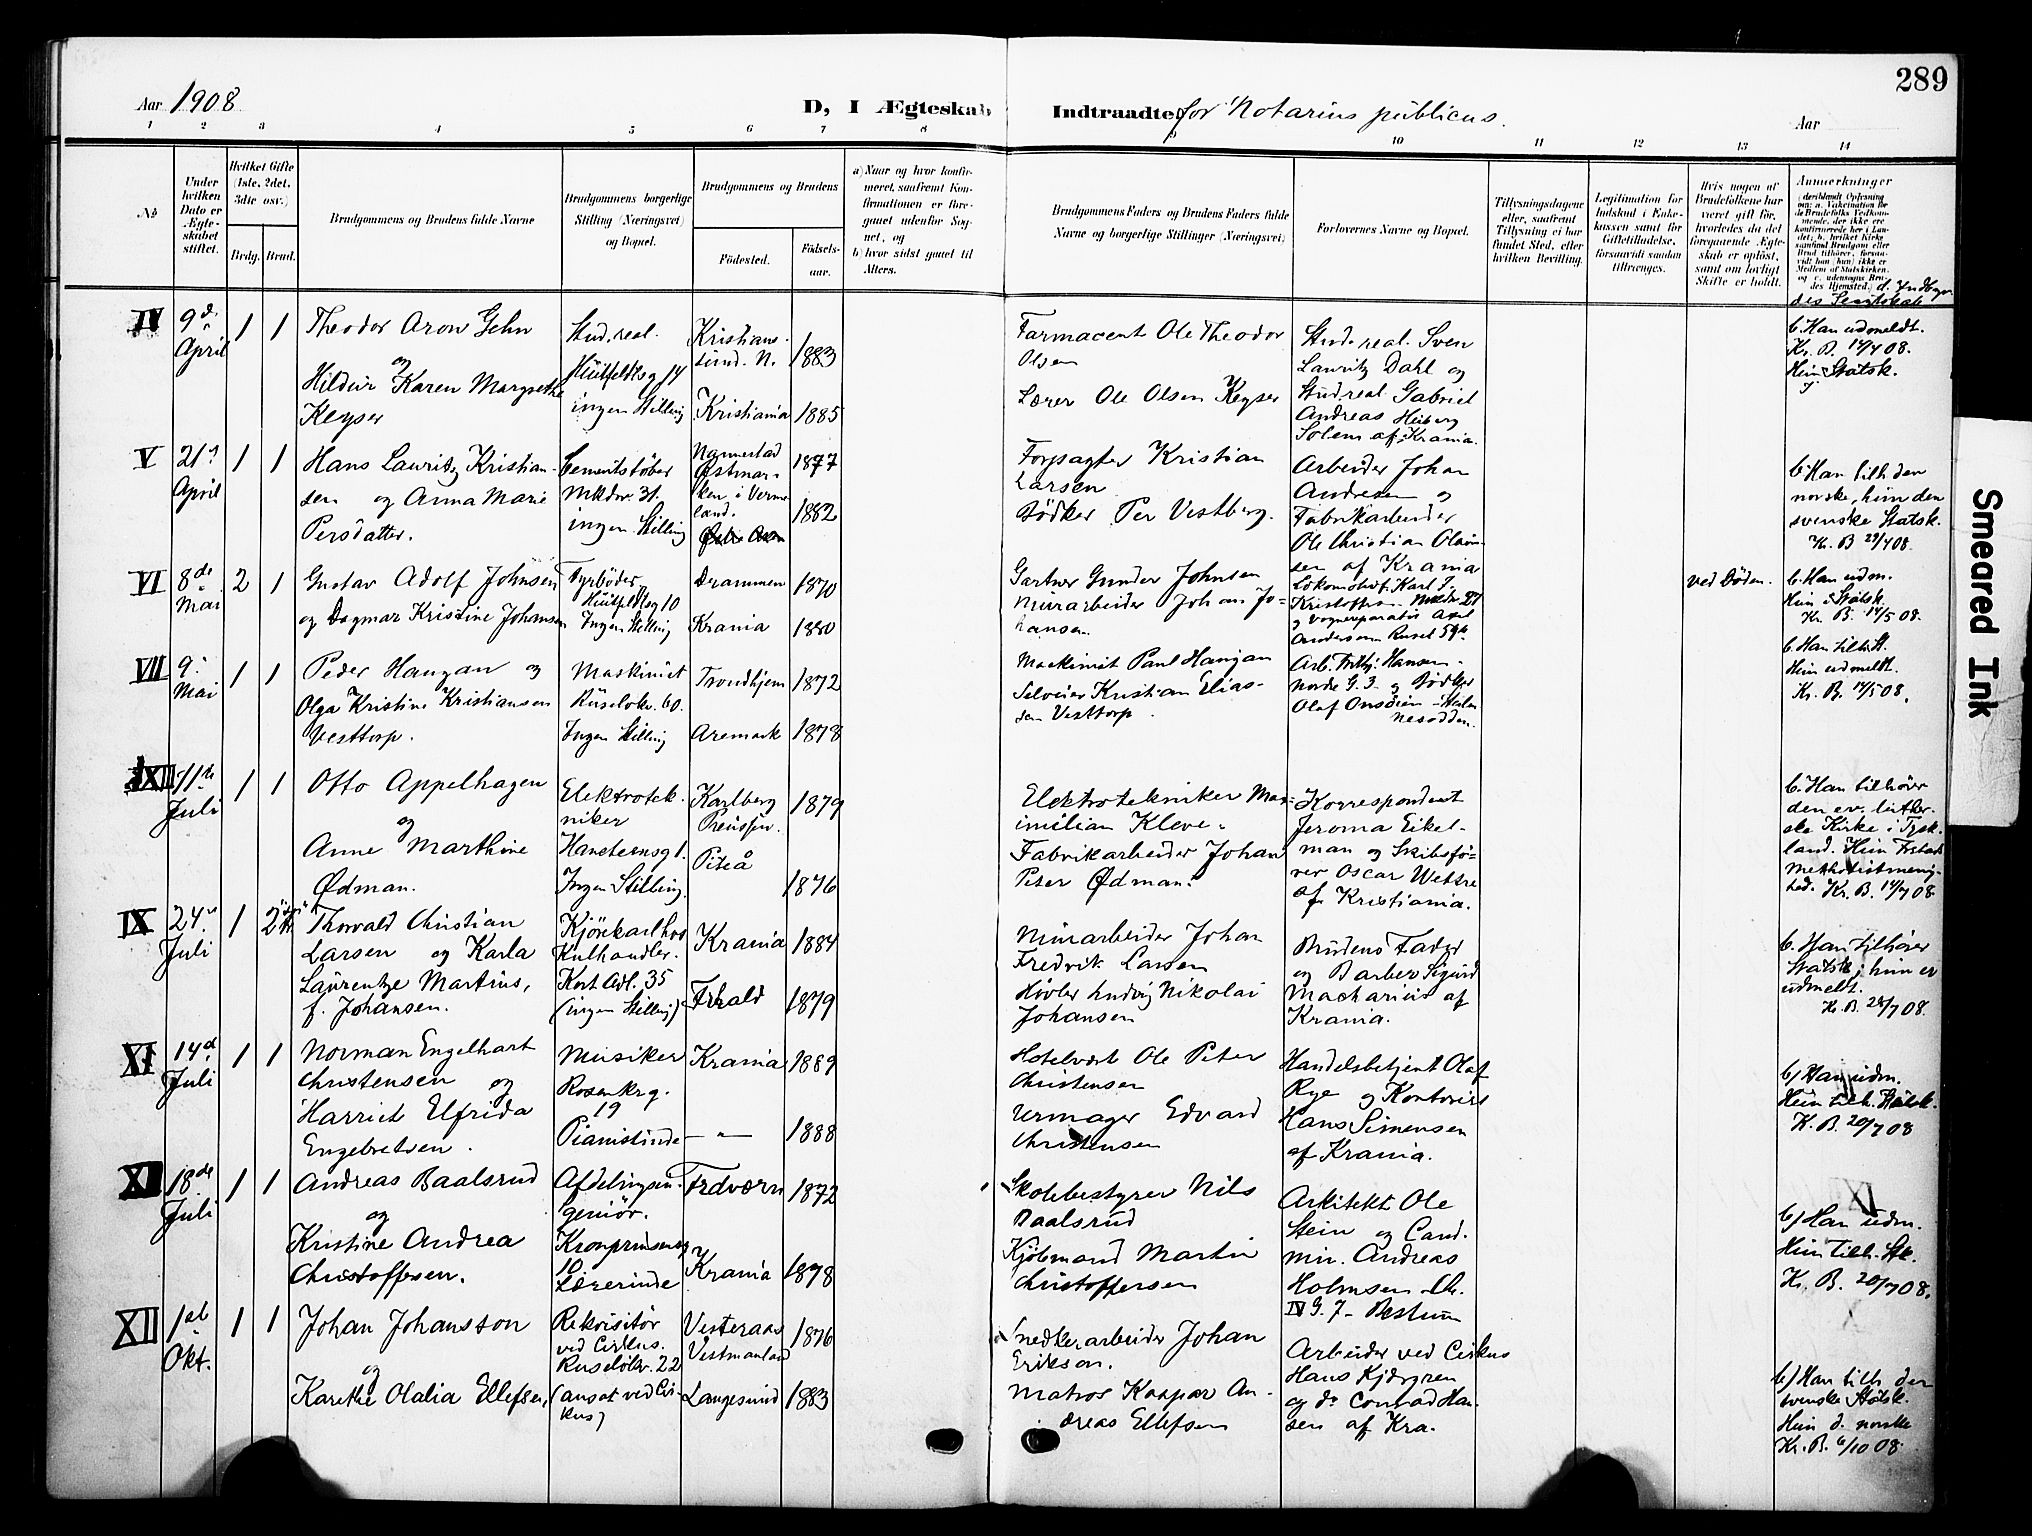 289
Aar 1908
D, I Ægteskab Indtraadte for Notarius publicus.
Aar
1 2 3 4 5 6 7 8 9 10 11 12 13 14
No
Under hvilken Dato er Ægteskabet stiftet.
Hvilket Gifte (1ste, 2det, 3die osv.)
Brdg. Brud.
Brudgommens og Brudens fulde Navne
Brudgommens borgerlige Stilling (Næringsvei) og Bopæl.
Brudgommens og Brudens
Fødested.
Fødsels-aar.
a) Naar og hvor konfirmeret, saafremt Konfirmationen er foregaaet udenfor Sognet, og
b) hvor sidst gaaet til Alters.
Brudgommens Faders og Brudens Faders fulde Navne og borgerlige Stillinger (Næringsvei)
Forlovernes Navne og Bopæl.
Tillysningsdagene eller, saafremt Tillysning ei har fundet Sted, efter hvilken Bevilling.
Legitimation for Indskud i Enkekassen samt for Giftetilladelse, forsaavidt saadan tiltrænges.
Hvis nogen af Brudefolkene har været gift før, hvorledes da det foregaaende Ægteskab er opløst, samt om lovligt Skifte er holdt.
Anmerkninger
IV
9d. April
1 1
Theodor Aron Gehn
og
Hildur Karen Margrethe
Keyser
Stud. real.
Huitfeldtsg 14
ingen Stilling
Kristians-
sund. N. 1883
Kristiania 1885
Farmaceut Ole Theodor
Olsen
Lærer Ole Olsen Keyser
Stud. real. Sven
Lauritz Dahl og
Stud. real. Gabriel
Andreas Heiberg
Solem af Krania.
b. Han udmeldt.
Kr. B. 14/4 08.
Hun i Statsk.
V
21 April
1 1
Hans Lauritz Kristian-
sen og Anna Marie
Persdatter.
Cementstøber
Mkdv. 31.
ingen Stilling
Nannestad 1877
Østmar-
ken i Verm-
land. 1882
Forpagter Kristian
Larsen
Bødker Per Vestberg.
Arbeider Johan
Andresen og
Fabrikarbeider
Ole Christian Olsøn-
sen af Krania
b. Han tilh. den
norske, hun den
svenske Statsk.
Kr. B 29/4 08.
VI
8de Mai
2 1
Gustav Adolf Johnsen
og Dagmar Kristine Johansen
Fyrbøder
Huitfeldtsg 10
Ingen Stilling
Drammen 1870
Krania 1880
Gartner Gunder Johnsen
Murarbeider Johan Jo-
hansen.
Lokomotivf. Karl J.
Kristoffersen Mkdv. 27
og Vognreparatør Axel
Andersen Rusel 59b.
ved Døden.
b. Han udm.
Hun i Statsk.
Kr. B. 14/5 08.
VII
9. Mai
1 1
Peder Haugan og
Olga Kristine Kristiansen
Vesttorp.
Maskinist
Ruseløkv. 60.
Ingen Stilling
Trondhjem 1872
Aremark 1878
Maskinist Paul Haugan
Selveier Kristian Elias-
sen Vesttorp.
Arb. Fritjz. Hansen -
Nordre G. 3. og Bødker
Olaf Onsøien -
Nesodden.
b. Han tilh. St.
Hun udmeldt.
Kr. B. 14/5 08.
11te Juli
1 1
Otto Appelhagen
og
Anne Marthine
Ødman.
Elektrotek-
niker
Hansteensg 1.
Ingen Stilling.
Karlberg
Preussen. 1879
Piteå 1876
Elektrotekniker Max-
imilian Kleve.
Fabrikarbeider Johan
Peter Ødman.
Korrespondent
Jeroma Eikel-
man og Skibsfø-
rer Oscar Wettre
af Kristiania.
b. Han tilhører
den ev. luther-
ske Kirke i Tysk-
land. Hun Frstads
Methodistmenig-
hed. Kr. B. 14/7 08
IX
24. Juli
1 2
Thorvald Christian
Larsen og Karla
Laurentze Martius,
f. Johansen.
Kjørekarl hos
Kulhandler.
Kort Adl. 35
(ingen Stilling)
Krania 1884
Frhald 1879
Murarbeider Johan
Fredrik Larsen
Høvler Ludvig Nikolai
Johansen
Brudens Fader
og Barber Sigurd
Macharius af
Krania.
b. Han tilhører
Statsk; hun er
udmeldt.
Kr. B. 28/7 08.
XI
14d Juli
1 1
Norman Engelhart
Christensen og
Harriet Elfrida
Engebretsen.
Musiker
Rosenkrg.
19
Pianistinde
Krania 1889
— " — 1888
Hotelvært Ole Peter
Christensen
Urmager Edvard
Christensen
Handelsbetjent Olaf
Rye og Kontorist
Hans Simensen
af Krania.
b) Han udm.
Hun tilh. Statsk.
K. B. 20/7 08
XI
18de Juli
1 1
Andreas Baalsrud
og
Kristine Andrea
Christoffersen.
Afdelingsin-
geniør.
Kronprinsensg
10
Lærerinde
Frdværn 1872
Krania 1878
Skolebestyrer Nils
Baalsrud
Kjøbmand Martin
Christoffersen
Arkitekt Ole
Stein og Cand.
min. Andreas
Holmsen - Chr.
IV G. 7 - Bestum
b) Han udm.
Hun tilh. Stk.
Kr. B. 20/7 08.
XII
1ste Okt.
1 1
Johan Johansson
og
Karethe Olalia Ellefsen,
Rekvisitør
ved Cirkus.
Ruseløkv. 22
(ansat ved Cir-
kus)
Vesteraas
Vestmanland 1876
Langesund 1883
Snedkerarbeider Johan
Erikson.
Matros Kaspar An-
dreas Ellefsen
Arbeider ved Cirkus
Hans Kjærgren
og do Conrad Han-
sen af Kra.
b) Han tilh. den
svenske Statsk.
Hun d. norske
Kr. B. 6/10 08.
Smeared Ink